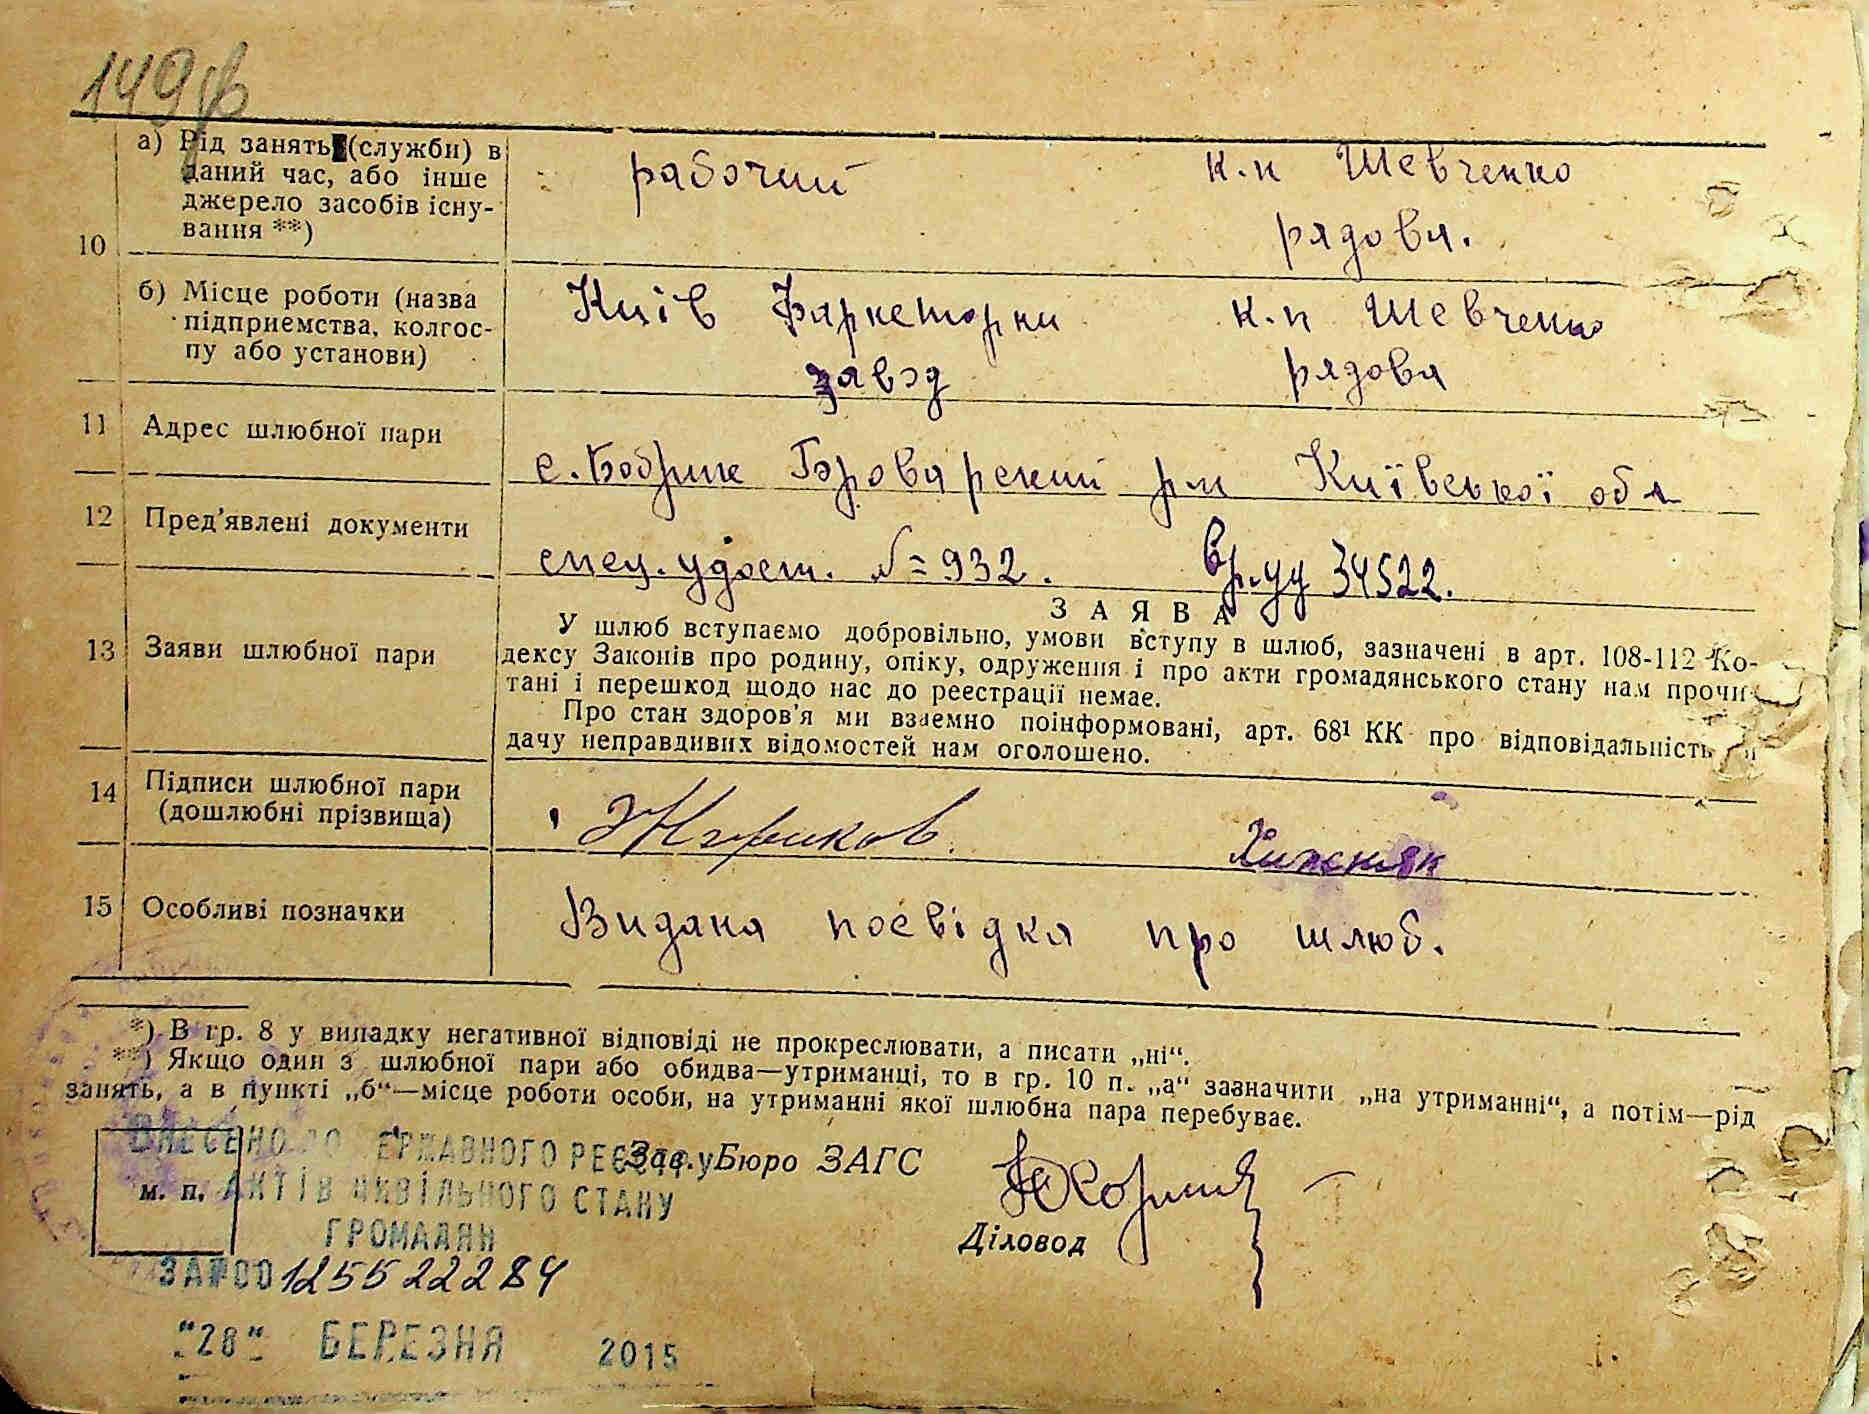 149ф
а) Рід занять (служби) в
даний час, або інше
джерело засобів існу-
вання **)
рабочий
к.п Шевченко
рядова.
10
б) Місце роботи (назва
підприємства, колгос-
пу або установи)
Київ Фаркеторни
завод
к.п Шевченко
рядова
11 Адрес шлюбної пари
с. Бобрик Броварский р-н Київської обл
12 Пред'явлені документи
спец. удост. №=932. вр. уд 34522.
ЗАЯВА
13 Заяви шлюбної пари
У шлюб вступаємо добровільно, умови вступу в шлюб, зазначені в арт. 108-112 Ко-
дексу Законів про родину, опіку, одруження і про акти громадянського стану нам прочи-
тані і перешкод щодо нас до реєстрації немає.
Про стан здоров'я ми взаємно поінформовані, арт. 68¹ КК про відповідальність
дачу неправдивих відомостей нам оголошено.
14 Підписи шлюбної пари
(дошлюбні прізвища)
Хижняк
15 Особливі позначки
Видана посвідка про шлюб.
*) В гр. 8 у випадку негативної відповіді не прокреслювати, а писати „ні“.
**) Якщо один з шлюбної пари або обидва—утриманці, то в гр. 10 п. „а“ зазначити „на утриманні“, а потім—рід
занять, а в пункті „б“—місце роботи особи, на утриманні якої шлюбна пара перебуває.
ВНЕСЕНО ДО ДЕРЖАВНОГО РЕЄСТРУ
АКТІВ ЦИВІЛЬНОГО СТАНУ
ГРОМАДЯН
м. п.
Зав. Бюро ЗАГС
Діловод
ЗА №00125522284
"28" БЕРЕЗНЯ 2015